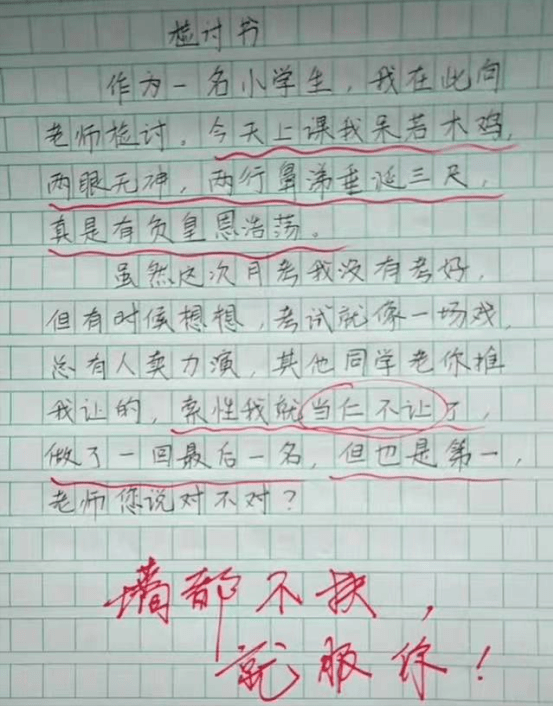 检讨书
作为一名小学生，我在此向
老师检讨。今天上课我呆若木鸡，
两眼无神，两行鼻涕垂涎三尺，
真是有负皇恩浩荡。
虽然这次月考我没有考好，
但有时候想想，考试就像一场戏，
总有人卖力演，其他同学老你推
我让的，索性我就当仁不让了，
做了一回最后一名，但也是第一，
老师您说对不对？
墙都不扶，
就服你！